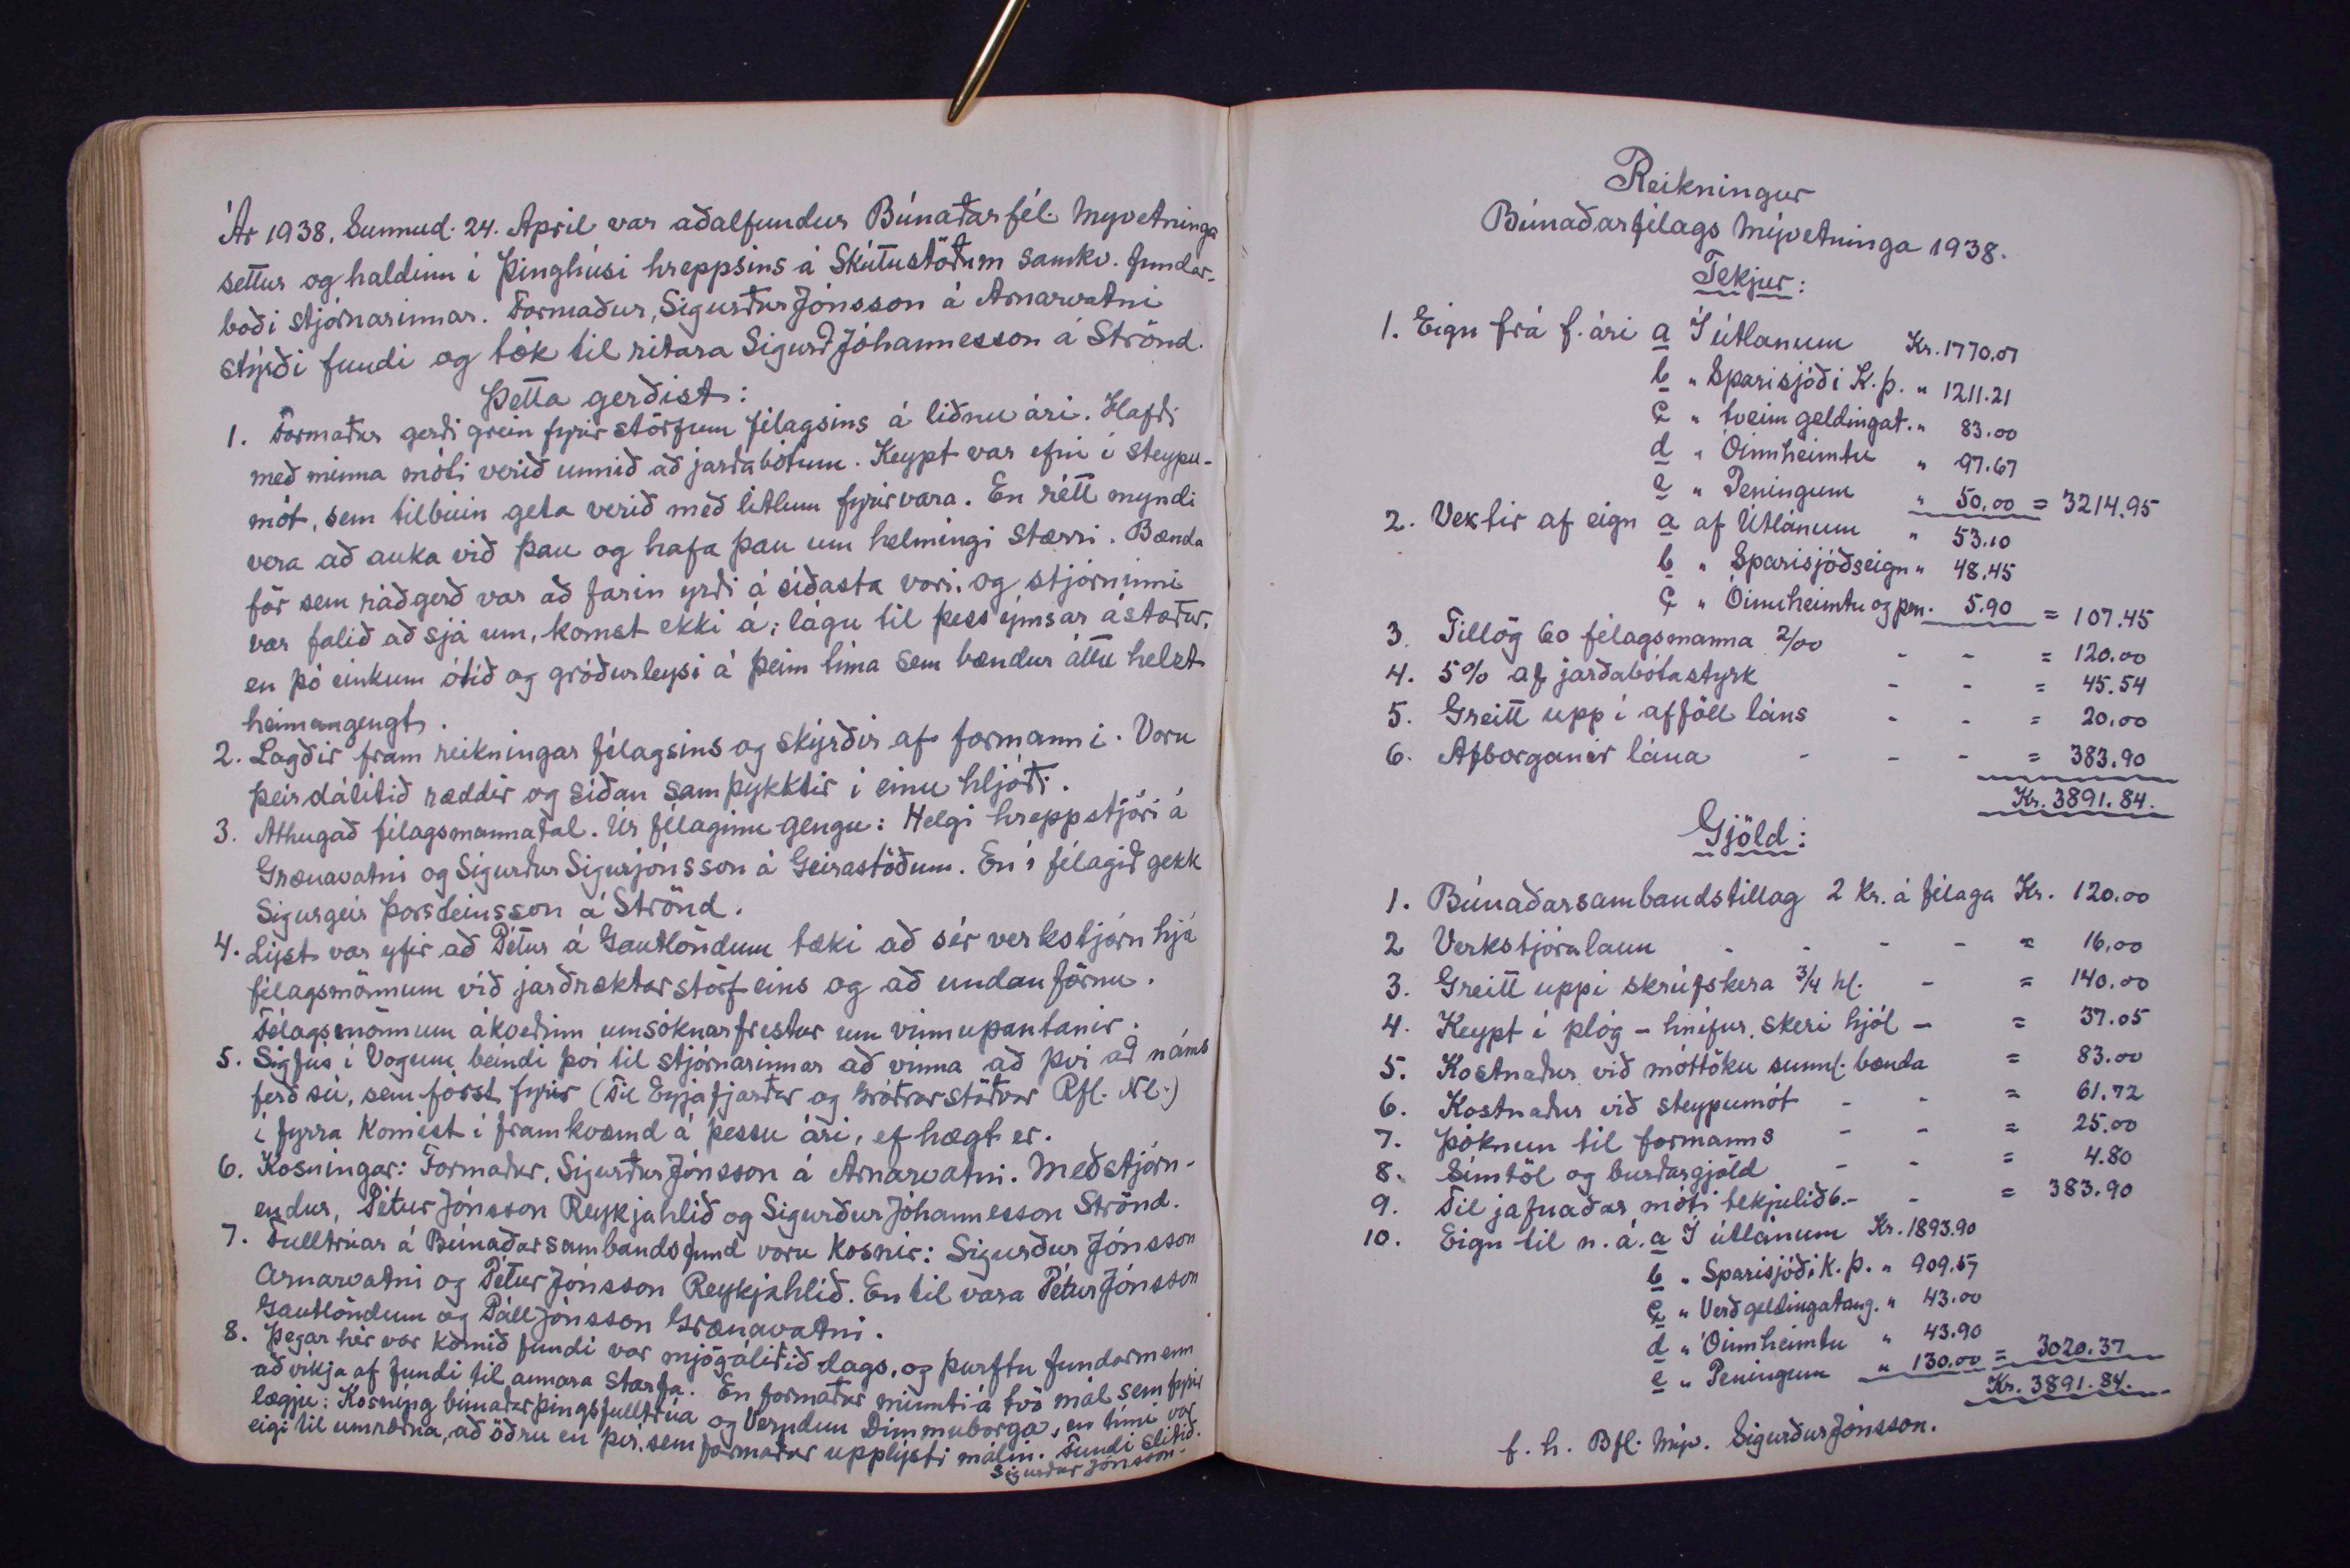 Ár 1938, Sunnud. 24. April var aðalfundur Búnaðarfél. Mývetninga
settur og haldinn í Þinghúsi hreppsins á Skútustöðum samkv. fundar-
boði stjórnarinnar. Formaður, Sigurður Jónsson á Arnarvatni
stýrði fundi og tók til ritara Sigurð Jóhannesson á Strönd.
Þetta gerðist:
1. Formaður gerði grein fyrir störfum félagsins á liðnu ári. Hafði
með minna móti verið unnið að jarðabótum. Keypt var efni í steypu-
mót, sem tilbúin geta verið með litlum fyrirvara. En rétt myndi
vera að auka við þau og hafa þau um helmingi stærri. Bænda
för sem ráðgerð var að farin yrði á síðasta vori, og stjórninni
var falið að sjá um, komst ekki á; lágu til þess ýmsar ástæður,
en þó einkum ótíð og gróðurleysi á þeim tíma sem bændur áttu helzt
heimangengt.
2. Lagðir fram reikningar félagsins og skýrðir af formanni. Voru
þeir dálítið ræddir og síðan samþykktir í einu hljóði.
3. Athugað félagsmannatal. Úr félaginu gengu: Helgi hreppstjóri á
Grænavatni og Sigurður Sigurjónsson á Geirastöðum. En í félagið gekk
Sigurgeir Þorsteinsson á Strönd.
4. Lýst var yfir að Pétur á Gautlöndum tæki að sér verkstjórn hjá
félagsmönnum við jarðræktarstörf eins og að undanförnu.
Félagsmönnum ákveðinn umsóknarfrestur um vinnupantanir.
5. Sigfús í Vogum beindi því til stjórnarinnar að vinna að því að náms
ferð sú, sem fórst fyrir (til Eyjafjarðar og Gróðrarstöðvar Rfl. Nl.)
í fyrra komist í framkvæmd á þessu ári, ef hægt er.
6. Kosningar: Formaður, Sigurður Jónsson á Arnarvatni. Meðstjórn-
endur, Pétur Jónsson Reykjahlíð og Sigurður Jóhannesson Strönd.
7. Fulltrúar á Búnaðarsambandsfund voru kosnir: Sigurður Jónsson
Arnarvatni og Pétur Jónsson Reykjahlíð. En til vara Pétur Jónsson
Gautlöndum og Páll Jónsson Grænavatni.
8. Þegar hér var komið fundi var mjög áliðið dags, og þurftu fundarmenn
að víkja af fundi til annara starfa. En formaður minnti á tvö mál sem fyrir
lægju: Kosning búnaðarþingsfulltrúa og Verndun Dimmuborga, en tími var
eigi til umræðna, að öðru en því, sem formaður upplýsti málin. Fundi slitið.
Sigurður Jónsson.
Reikningur
Búnaðarfélags Mývetninga 1938.
Tekjur:
1. Eign frá f. ári a Í útlánum Kr. 1770.07
b " Sparisjóði K.Þ. " 1211.21
c " tveim geldingat. " 83.00
d " Óinnheimtu " 97.67
e " Peningum " 50.00 = 3214.95
2. Vextir af eign a af Útlánum " 53.10
b " Sparisjóðseign " 48.45
c " Óinnheimtu og pen. 5.90 = 107.45
3. Tillög 60 félagsmanna 2/00 - - = 120.00
4. 5% af jarðabótastyrk - - = 45.54
5. Greitt upp í afföll láns - - = 20.00
6. Afborganir lána - - - = 383.90
Kr. 3891.84.
Gjöld:
1. Búnaðarsambandstillag 2 kr. á félaga Kr. 120.00
2 Verkstjóralaun - - - - = 16.00
3. Greitt uppí skrúfskera 3/4 hl. - = 140.00
4. Keypt í plóg - hnífur, skeri hjól - = 37.05
5. Kostnaður við móttöku sunnl. bænda = 83.00
6. Kostnaður við steypumót - - = 61.72
7. Þóknun til formanns - - = 25.00
8. Símtöl og burðargjöld - - = 4.80
9. Til jafnaðar móti tekjulið 6. - - = 383.90
10. Eign til n. á. a Í útlánum Kr. 1893.90
b " Sparisjóði K.Þ. " 909.57
c " Verð geldingatang. " 43.00
d " Óinnheimtu " 43.90
e " Peningum " 130.00 = 3020.37
Kr. 3891.84.
f. h. Bfl. Mýv. Sigurður Jónsson.